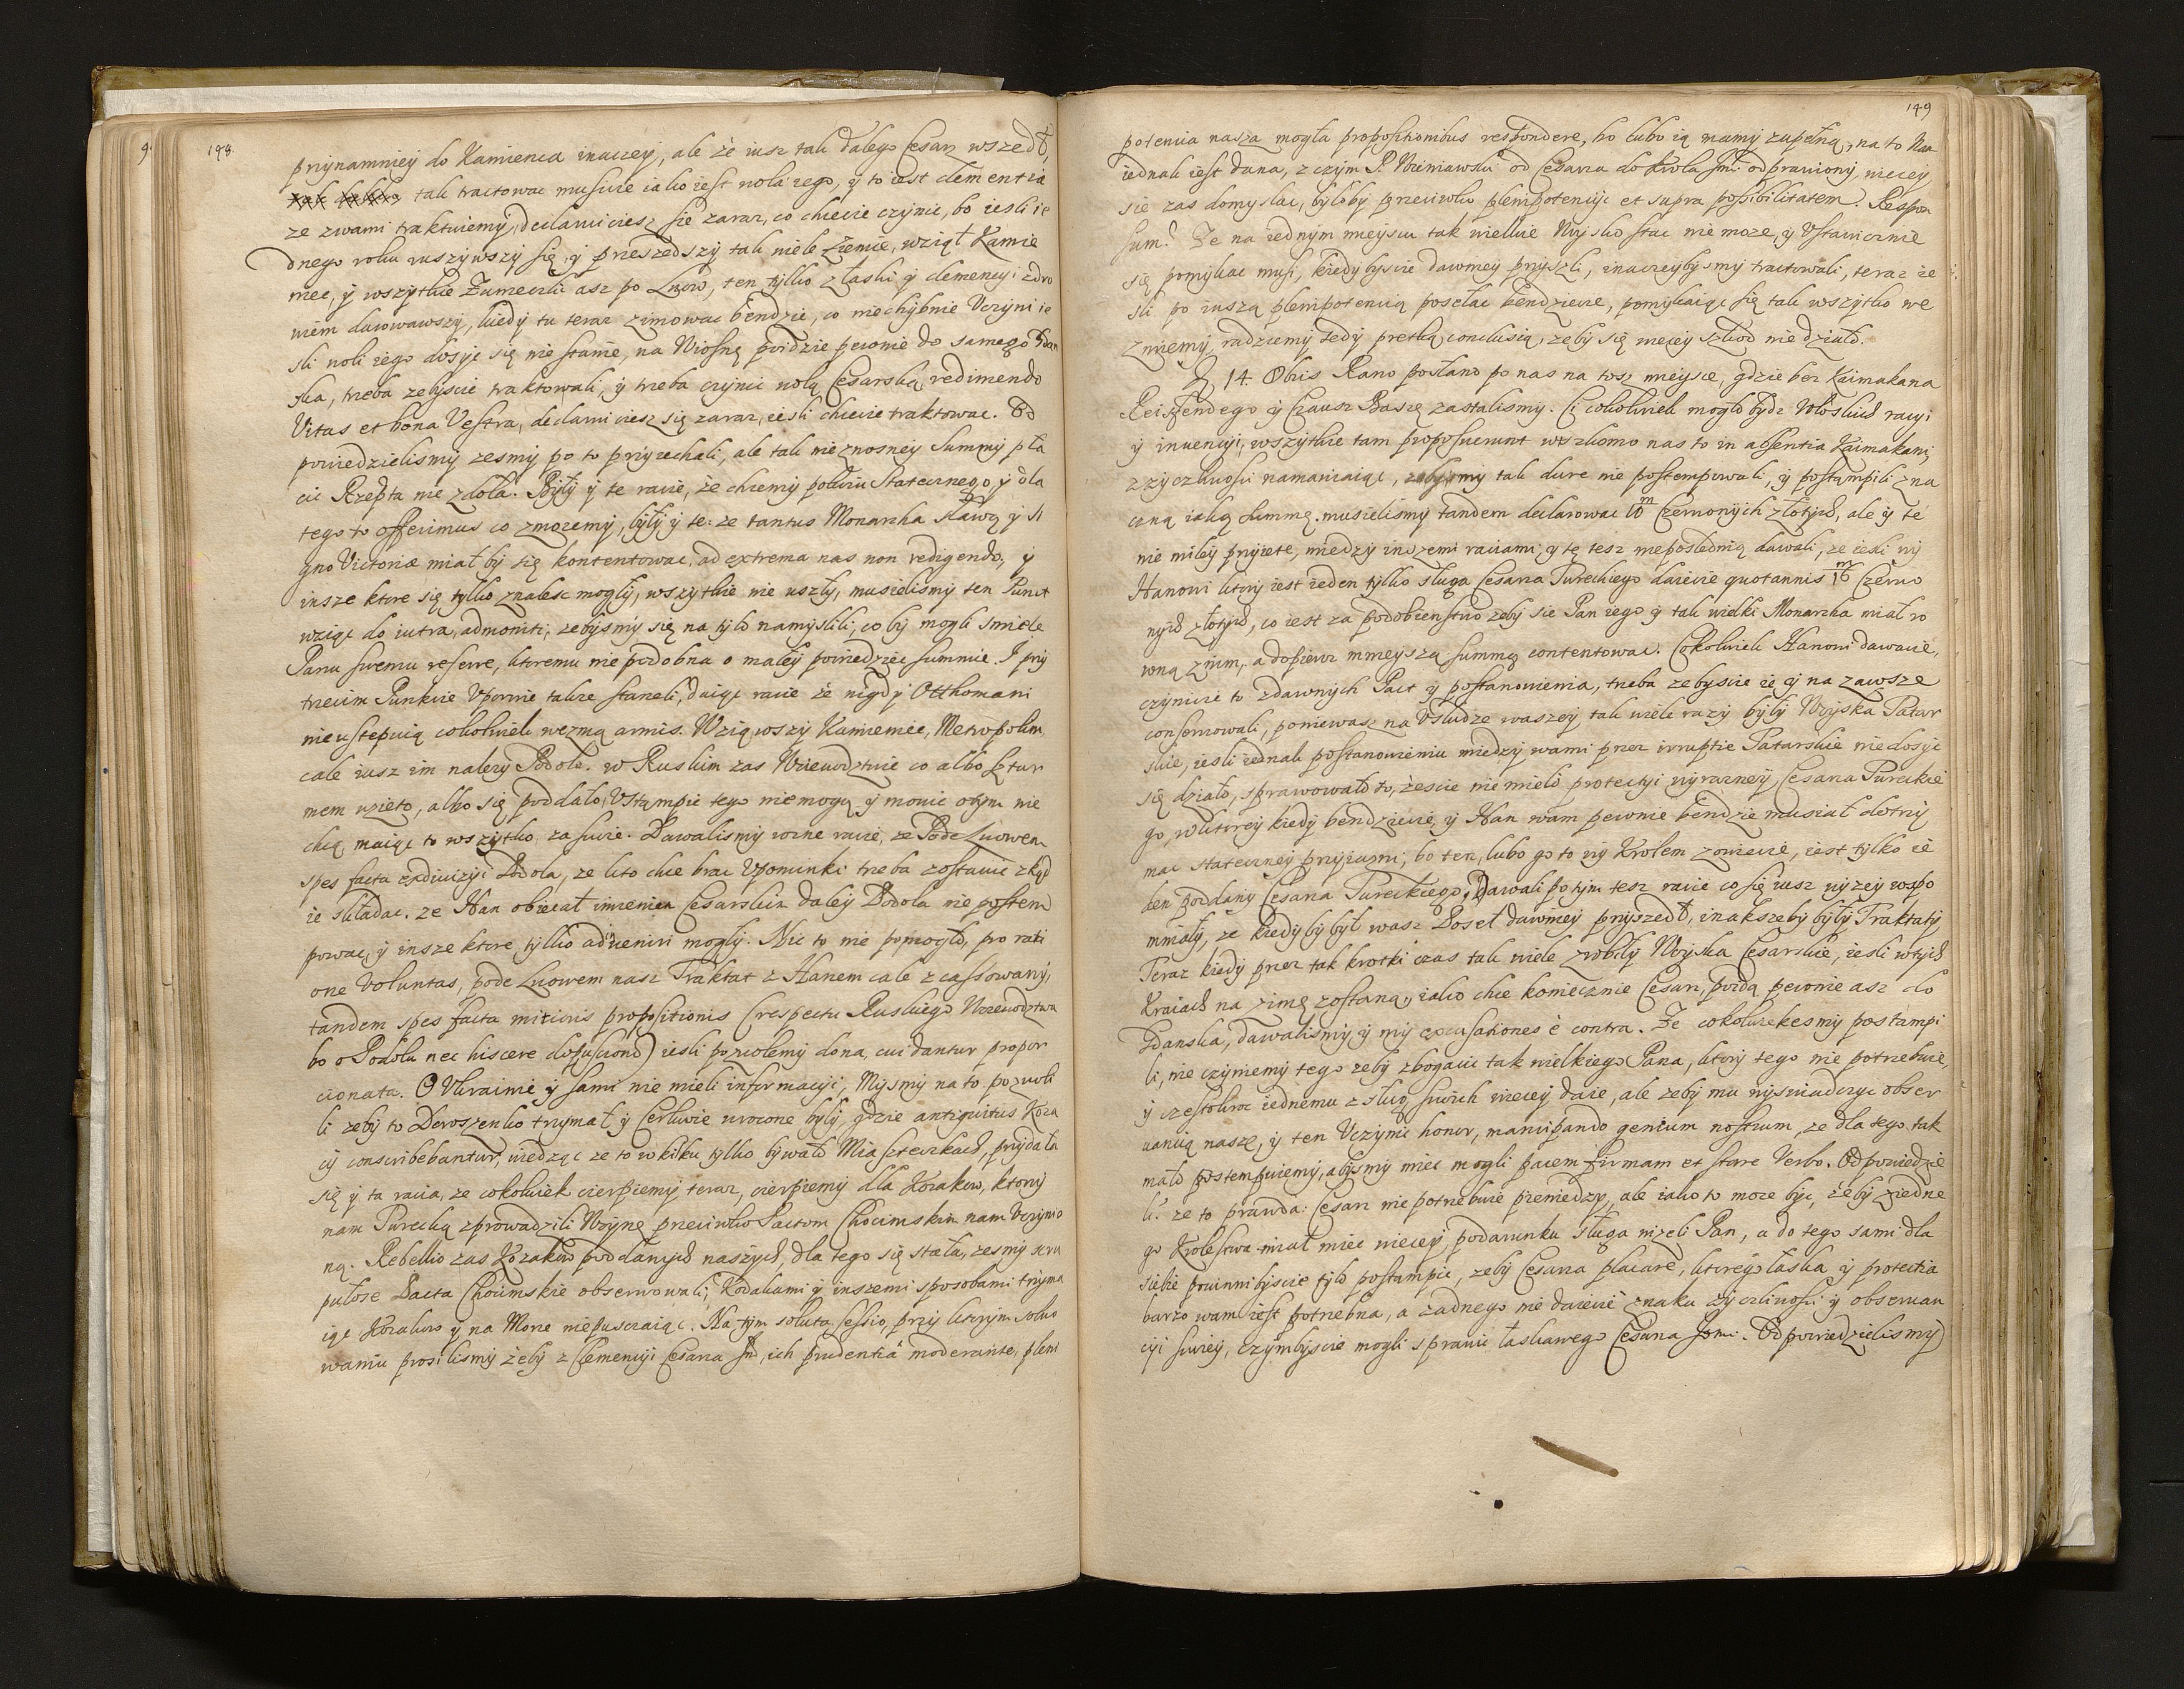 198.
przynamniey do Kamienca inaczey, ale że iusz tak dalego Cesarz wszedł,
tak tractowac musicie iako iest wola iego, y to iest clementia
ze zwami traktuiemy, declaruiciesz sie zaraz, co chcecie czynic, bo iesli ie
dnego roku ruszywszy się, y przeszedszy tak wiele Ziemie, wziął Kamie
niec, y wszytkie Zameczki asz po Lwow, ten tylko z łaski y clemencyi zdro
wiem darowawszy, kiedy tu teraz zimowac bendzie, co niechybnie Uczyni ie
sli woli iego dosyc się nie stanie, na Wiosnę poidzie pewnie do samego Gdan
ska, treba zebyscie traktowali, y treba czynic wolą Cesarską redimendo
Vitas et bona Vestra, declaruiciesz się zaraz, iesli chcecie traktowac. Od
powiedzielismy zesmy po to przyiechali, ale tak nieznosney Summy pła
cic Rzepta nie zdoła. Były y te racie, że chcemy pokoiu Statecznego, y dla
tego to offerimus co zmozemy, były y te: ze tantus Monarcha sławą y si
gno Victoriæ miał by się kontentowac, ad extrema nas non redigendo, y
insze ktore się tylko znalesc mogły, wszytkie nie uszły, musielismy ten Punct
wziąc do iutra, admoniti, zebysmy się na tyło namyslili, co by mogli smiele
Panu swemu referre, ktoremu nie podobna o małey powiedziec summie. I przy
trzecim Punkcie Upornie takze staneli, daiąc racie że nigdy Otthomani
nieustepuią cokolwiek wezmą armis. Wziąwszy Kamieniec, Metropolim,
cale iusz im nalezy Podole. w Ruskim zas Woiewodztwie co albo sztur
mem wzięto, albo się poddało, Ustąpic tego niemogą y mowic otym nie
chcą, maiąc to wszytko, za swoie. Dawalismy rozne racie, ze Pode Lwowem
spes facta cædivizyi Podola, ze kto chce brac Upominki treba zostawic zkąd
ie składac. ze Han obiecał imieniem Cesarskim daley Podola nie postem
powac, y insze ktore tylko adinveniri mogły. Nic to nie pomogło, pro rati
one Voluntas, pode Lwowem nasz Traktat z Hanem cale z cassowany,
tandem spes facta mitioris propositionis (respectu Ruskiego Woiewodztwa
bo o Podolu nec hiscere dopuscono) iesli pozwolemy dona, cui dantur propor
cionata. O Ukrainie y sami nie mieli informacyi, Mysmy na to pozwoli
li zeby to Doroszenko trzymał y Cerkwie wrocone były, gdzie antiquitus Koza
cy conscribebantur, wiedząc ze to w kilku tylko bywało Miasteczkach, przydała
się y ta racia, ze cokolwiek cierpiemy teraz, cierpiemy dla Kozakow, ktorzy
nam Turecką zprowadzili Woynę przeciwko Pactom Chocimskim nam Uczynio
ną. Rebellio zas Kozakow poddanych naszych, dla tego się stała, zesmy scru
pulose Pacta Chocimskie obserwowali, Kodakami y inszemi sposobami trzyma
iąc Kozakow y na Morze niepusczaiąc. Na tym soluta sessio, przy ktorym solwo
waniu prosilismy żeby z Clemencyi Cesarza Jmci, ich prudentiâ moderante, pleni

149
potencia nasza mogła propositionibus respondere, bo lubo ią mamy zupełną, na to
iednak iest dana, z czym P. Wieniawski od Cesarza do Krola Jmci odprawiony, wiecey
sie zas domyslac, byłoby przeciwko plenipotencyi et supra possibilitatem. Respon
sum: Ze na iednym mieyscu tak wielkie Woysko stac nie moze, y Ustawicznie
się pomykac musi, kiedy byscie dawniey przyszli, inaczeybysmy tractowali, teraz ie
sli po inszą plenipotencią posełac bendziecie, pomykaiąc się tak wszytko we
zmiemy, radziemy tedy pretką conclusią, zeby się wiecey szkod niedziało.
14. Obris Rano posłano po nas na tosz mieysce, gdzie bez Kaimakana
Reisfendego y Czausz Baszę zastalismy. Ci cokolwiek mogło bydz Włoskich racyi
y inuencyi, wszytkie tam proposuerunt wrzkomo nas to in absentia Kaimakani
z zyczliwosci namawiaiąc, zebysmy tak dure nie postempowali, y postąmpili zna
czną iaką summą. musielismy tandem declarowac 10 m Czerwonych złotych, ale y te
nie miley przyiete, miedzy inszemi raciami, y tę tesz nieposlednią dawali, ze iesli wy
Hanowi ktory iest ieden tylko sługa Cesarza Tureckiego daiecie quotannis 16 m Czerwo
nych złotych, co iest za podobienstwo zeby sie Pan iego y tak wielki Monarcha miał ro
wną znim, a dopieroz mnieyszą summą contentowac. Cokolwiek Hanowi dawacie,
czynicie to zdawnych Pact y postanowienia, treba zebyscie ie y na zawsze
conserwowali, poniewasz na Usłudze waszey tak wiele razy były Woyska Tatar
skie, iesli iednak postanowieniu miedzy wami przez irruptie Tatarskie niedosyc
się działo, sprawowało to, żescie nie mieli protectyi wyrazney Cesarza Turecki
go, w ktorey kiedy bendziecie, y Han wam pewnie bendzie musiał dotrzy
mac stateczney przyiazni, bo ten, lubo go to wy Krolem zowiecie, iest tylko ie
den poddany Cesarza Tureckiego, Dawali potym tesz racie co się iusz wyzey wspo
mniały, ze kiedy by był wasz Poseł dawniey przyszedł, inakszeby były Traktaty
Teraz kiedy przez tak krotki czas tak wiele zrobiły Woyska Cesarskie, iesli wtych
Kraiach na zimę zostaną, iako chce koniecznie Cesarz, poidą pewnie asz do
Gdanska, dawalismy y my excusationes è contra. Ze cokolwiekesmy postampi
li, nie czyniemy tego zeby zbogacic tak wielkiego Pana, ktory tego nie potrzebuie,
y czestokroc iednemu z sług swoich wiecey daie, ale zeby mu wyswiadczyc obser
uancią naszę, y ten Uczynic honor, mancipando genium nostrum, ze dla tego tak
mało postempuiemy, abysmy miec mogli pacem firmam et stare Verbo. Odpowiedzie
li: ze to prawda: Cesarz niepotrzebuie pieniedzy, ale iako to moze byc, żeby ziedne
go Krolestwa miał miec wiecey podarunku sługa nizeli Pan, a do tego sami dla
siebie powinnibyscie tyło postąmpic, zeby Cesarza placare, ktorego łaska y protectia
barzo wam iest potrzebna, a zadnego nie daiecie znaku zyczliwosci y obserwan
cyi swoiey, czymbyscie mogli sprawic łaskawego Cesarza Jomci. Odpowiedzielismy